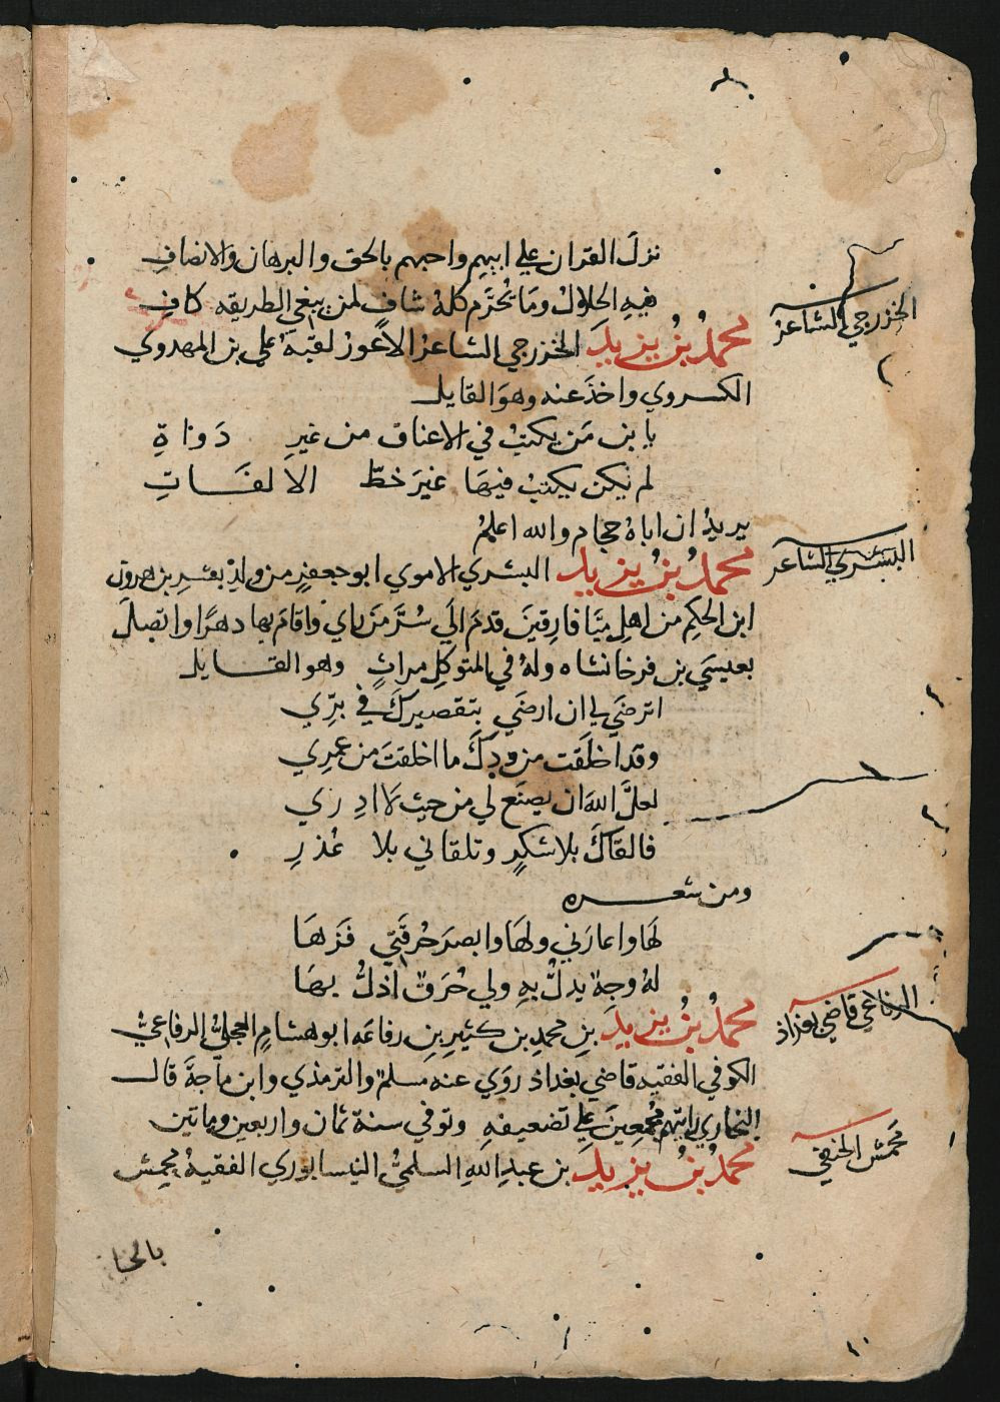 نزلَ القران علي ابيهم واجبهم بالحق والبرهان والانصافِ
فيهِ الحلالُ وما تحرَّم كلهُ شافٍ لمن يبغي الطريقه كافِ
الخزرجي الشاعر
محمدُ بنُ يزيدَ الخزرجي الشاعرُ الاعورُ لقبهُ علي بن المهدوي
الكسروي واخذَ عنه وهوَ القايل
يا بن مَن يكتبُ في الاعناق من غيرِ دَواةِ
لم يكن يكتبُ فيهَا غيرَ خطّ الالفَاتِ
يريدُ ان اباهُ حجام والله اعلمُ
البشري الشاعر
محمدُ بنُ يزيد البشري الاموي ابو جعفرٍ من ولدِ بشر بن هرون
ابن الحكِم من اهلِ ميَّا فارقينَ قدمَ الَي سُرَّ مَن راي واقامَ بها دهرًا واتصلَ
بعيسَي بن فرخانشاه ولهُ في المتوكلِ مراثٍ وهو القايل
اترضَي لي ان ارضَي بتقصيركَ في برِّي
وقد اخلَقت من ودِكَ ما اخلقتَ من عمرِي
لعلَّ اللهَ ان يصنَع لي من حيثُ لا ادري
فالقاكَ بلا شكرٍ وتلقاني بلا عُذرِ
ومن شعره
لهَا واعارَني ولهَا وابصرَ حُرقَتي فزَهَا
لهُ وجهٌ يدلُّ بهِ ولي حُرَقٌ اذلُّ بهَا
الرفاعي قاضي بغداذ
محمدُ بنُ يزيدَ بنِ محمدِ بن كثيرِ بنِ رفاعَه ابو هشامٍ العجليُّ الرفاعيُّ
الكوفي الفقيه قاضي بغداذ روَي عنه مسلمٌ والترمذي وابن ماجةَ قال
البخاري رايتهم مجمعينَ علي تضعيفهِ وتوفي سنة ثمان واربعين وماتين
محمش الحنفي
محمدُ بنُ يزيدَ بن عبدِ اللهِ السلميُّ النيسابوري الفقيهُ محمش
بالحا